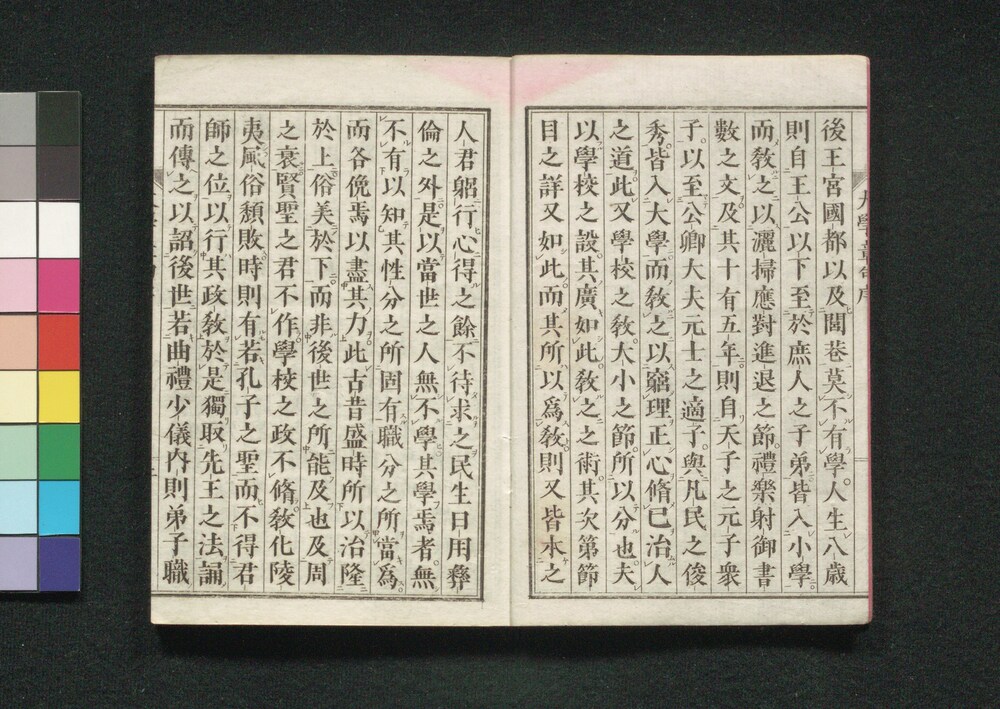 後王宮國都以及閭巷莫不有學人生八歲
則自王公以下至於庶人之子弟皆入小學
而敎之以灑掃應對進退之節禮樂射御書
數之文及其十有五年則自天子之元子衆
子以至公卿大夫元士之適子與凡民之俊
秀皆入大學而敎之以窮理正心脩己治人
之道此又學校之敎大小之節所以分也夫
以學校之設其廣如此敎之之術其次第節
目之詳又如此而其所以爲敎則又皆本之
人君躬行心得之餘不待求之民生日用彝
倫之外是以當世之人無不學其學焉者無
不有以知其性分之所固有職分之所當爲
而各俛焉以盡其力此古昔盛時所以治隆
於上俗美於下而非後世之所能及也及周
之衰賢聖之君不作學校之政不脩敎化陵
夷風俗頽敗時則有若孔子之聖而不得君
師之位以行其政敎於是獨取先王之法誦
而傳之以詔後世若曲禮少儀內則弟子職